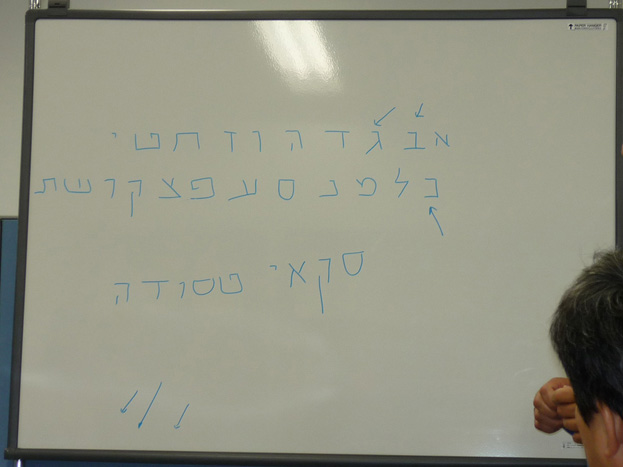 א ב ג ד ה ו ז ח ט י
כ ל מ נ ס ע פ צ ק ר ש ת
סקאי טסודה